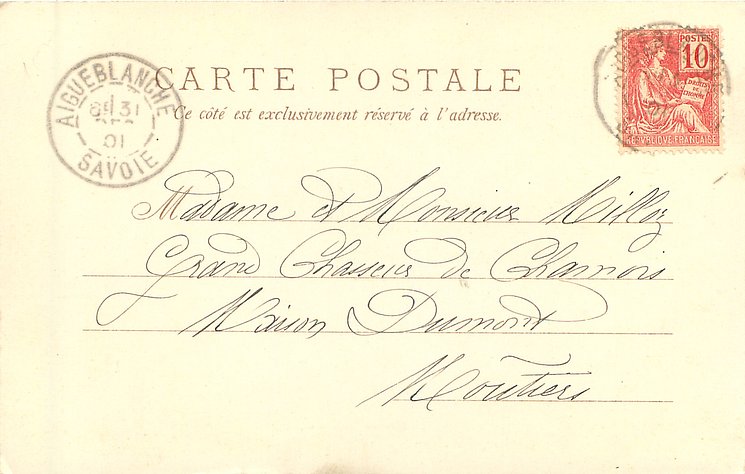 CARTE POSTALE
Ce côté est exclusivement réservé à l'adresse.
AIGUEBLANCHE
31
01
SAVOIE
POSTES
10
DROITS
DE
L'HOMME
REPUBLIQUE FRANÇAISE
Madame et Monsieur Milloz
Grand Chasseur de Chamois
Maison Dumont
Moûtiers